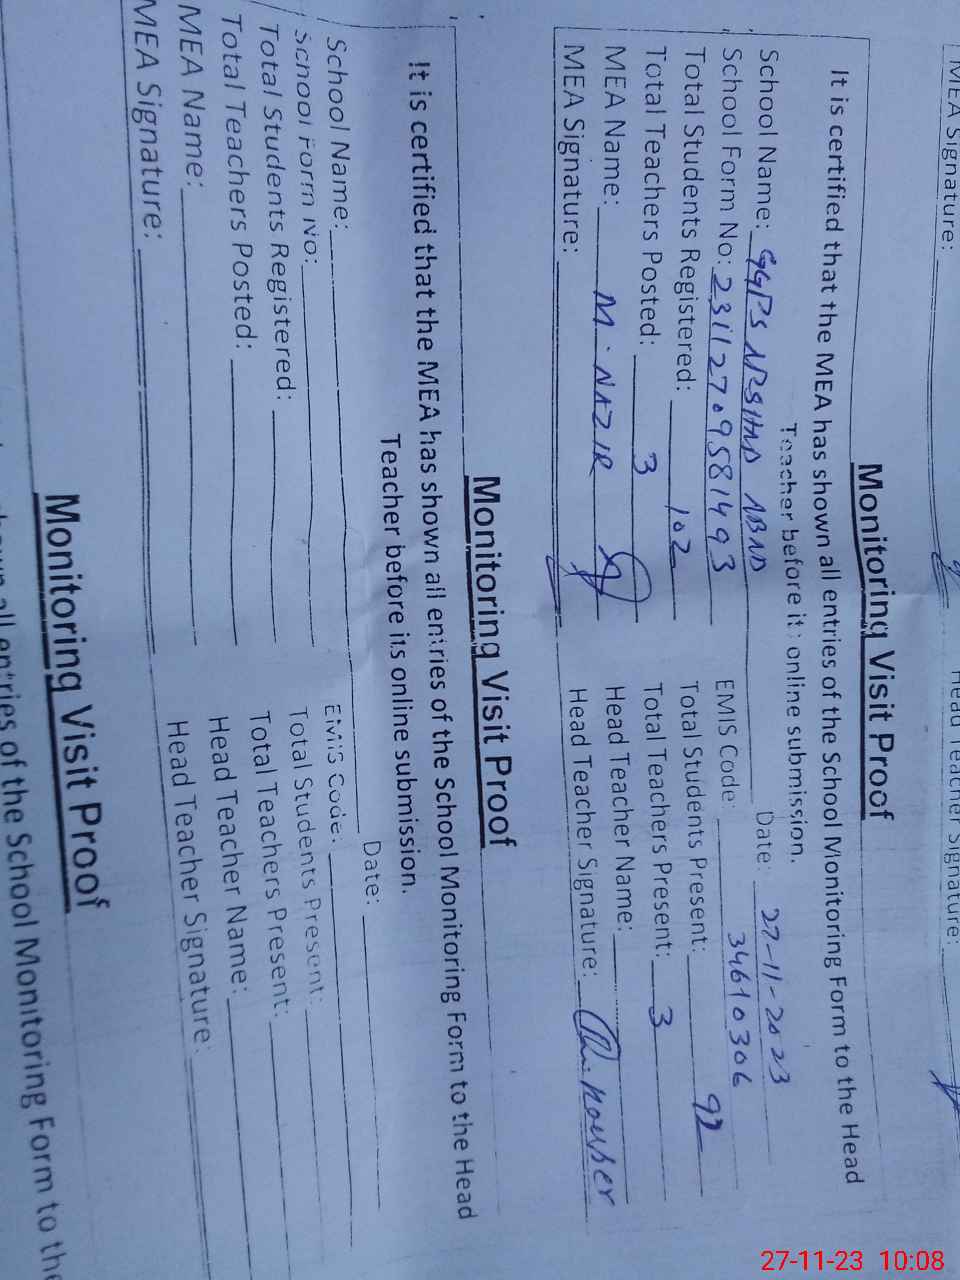 MEA Signature:
Head Teacher Signature:
Monitoring Visit Proof
It is certified that the MEA has shown all entries of the School Monitoring Form to the Head
Teacher before its online submission.
School Name: GGPS ABAD Date: 27-11-2023
School Form No: 23112709581493 EMIS Code: 34610306
Total Students Registered: 102 Total Students Present: 92
Total Teachers Posted: 3 Total Teachers Present: 3
MEA Name: M. NAZIR Head Teacher Name:
MEA Signature: Head Teacher Signature:
Monitoring Visit Proof
It is certified that the MEA has shown all entries of the School Monitoring Form to the Head
Teacher before its online submission.
School Name: Date:
School Form No: EMIS Code:
Total Students Registered: Total Students Present:
Total Teachers Posted: Total Teachers Present:
MEA Name: Head Teacher Name:
MEA Signature: Head Teacher Signature:
Monitoring Visit Proof
all entries of the School Monitoring Form to the
27-11-23 10:08